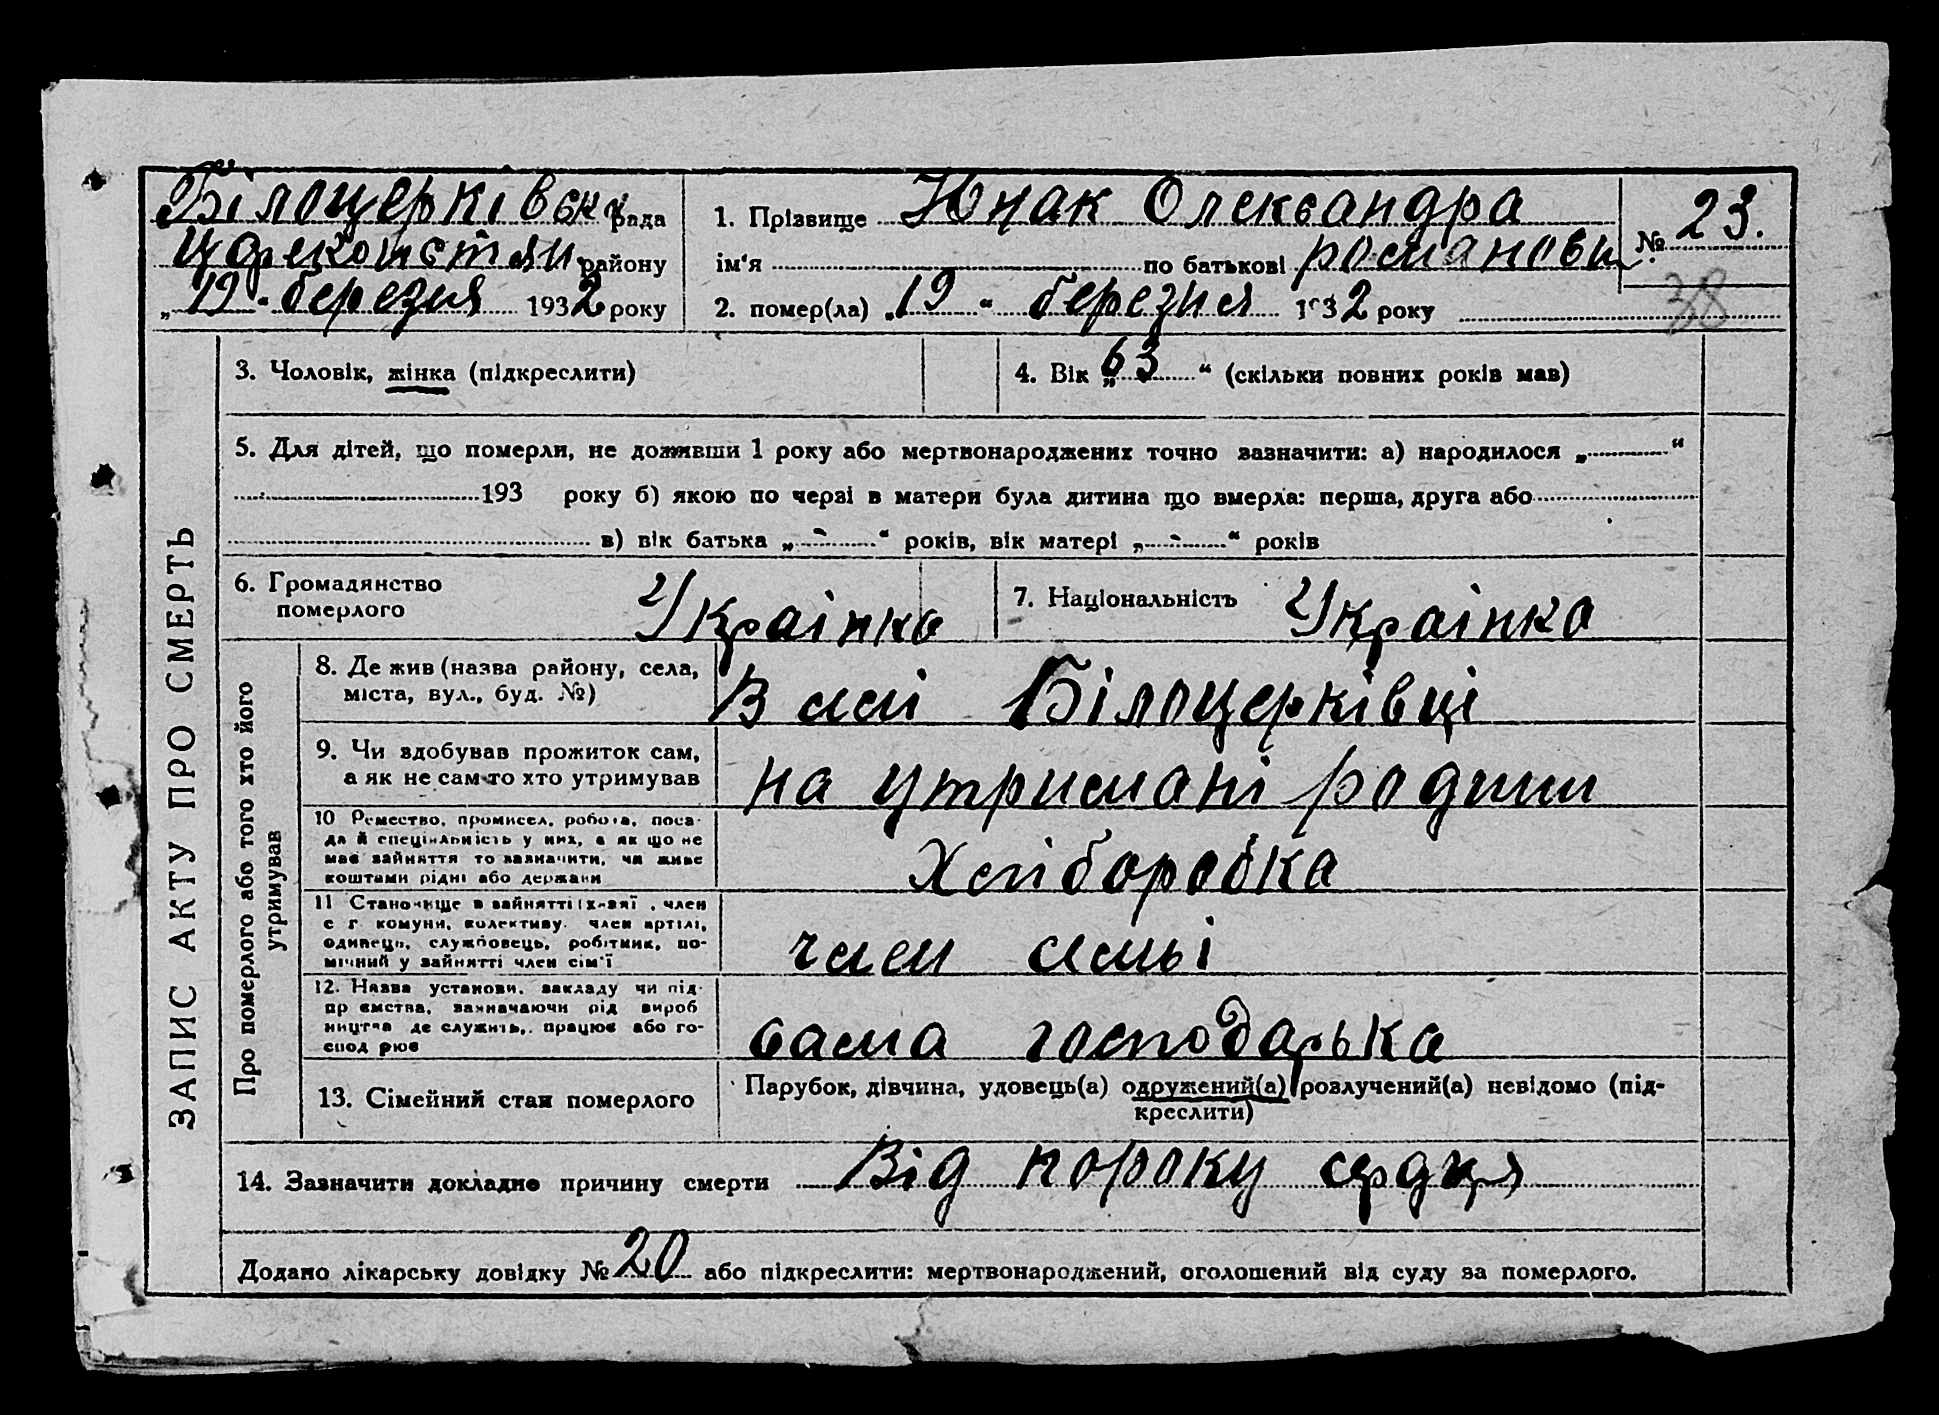 Білоцерківск рада
району
„19" березня 1932 року
1. Прізвище Юнак Олександра
ім'я по батькові романовн
№ 23.
38
2. помер(ла) „19" березня 1932 року
ЗАПИС АКТУ ПРО СМЕРТЬ
3. Чоловік, жінка (підкреслити)
4. Вік „63" (скільки повних років мав)
5. Для дітей, що померли, не доживши 1 року або мертвонароджених точно зазначити: а) народилося „ "
193 року б) якою по черзі в матери була дитина що вмерла: перша, друга або
в) вік батька „ - " років, вік матері „ - " років
6. Громадянство
померлого
Украінка
7. Національність Украінка
Про померлого або того хто його
утримував
8. Де жив (назва району, села,
міста, вул., буд. №)
В селі Білоцерківці
9. Чи здобував прожиток сам,
а як не сам то хто утримував
на утримані родини
10 Ремество, промисел, робота, поса-
да й спеціяльність у них, а як що не
має зайняття то зазначити, чи живе
коштами рідні або держави
Хліборобка
11 Становище в зайнятті (хазяї, член
с г. комуни, колективу. член артілі,
одинець, службовець, робітник, по-
мічний у зайнятті член сім'ї
член семьі
12. Назва установи, закладу чи під-
пр ємства, зазначаючи рід вироб
ництва де служить, працює або го-
спод рює
сама господарька
13. Сімейний стан померлого
Парубок, дівчина, удовець(а) одружений(а) розлучений(а) невідомо (під-
креслити)
14. Зазначити докладно причину смерти Від пороку сердця
Додано лікарську довідку № 20 або підкреслити: мертвонароджений, оголошений від суду за померлого.